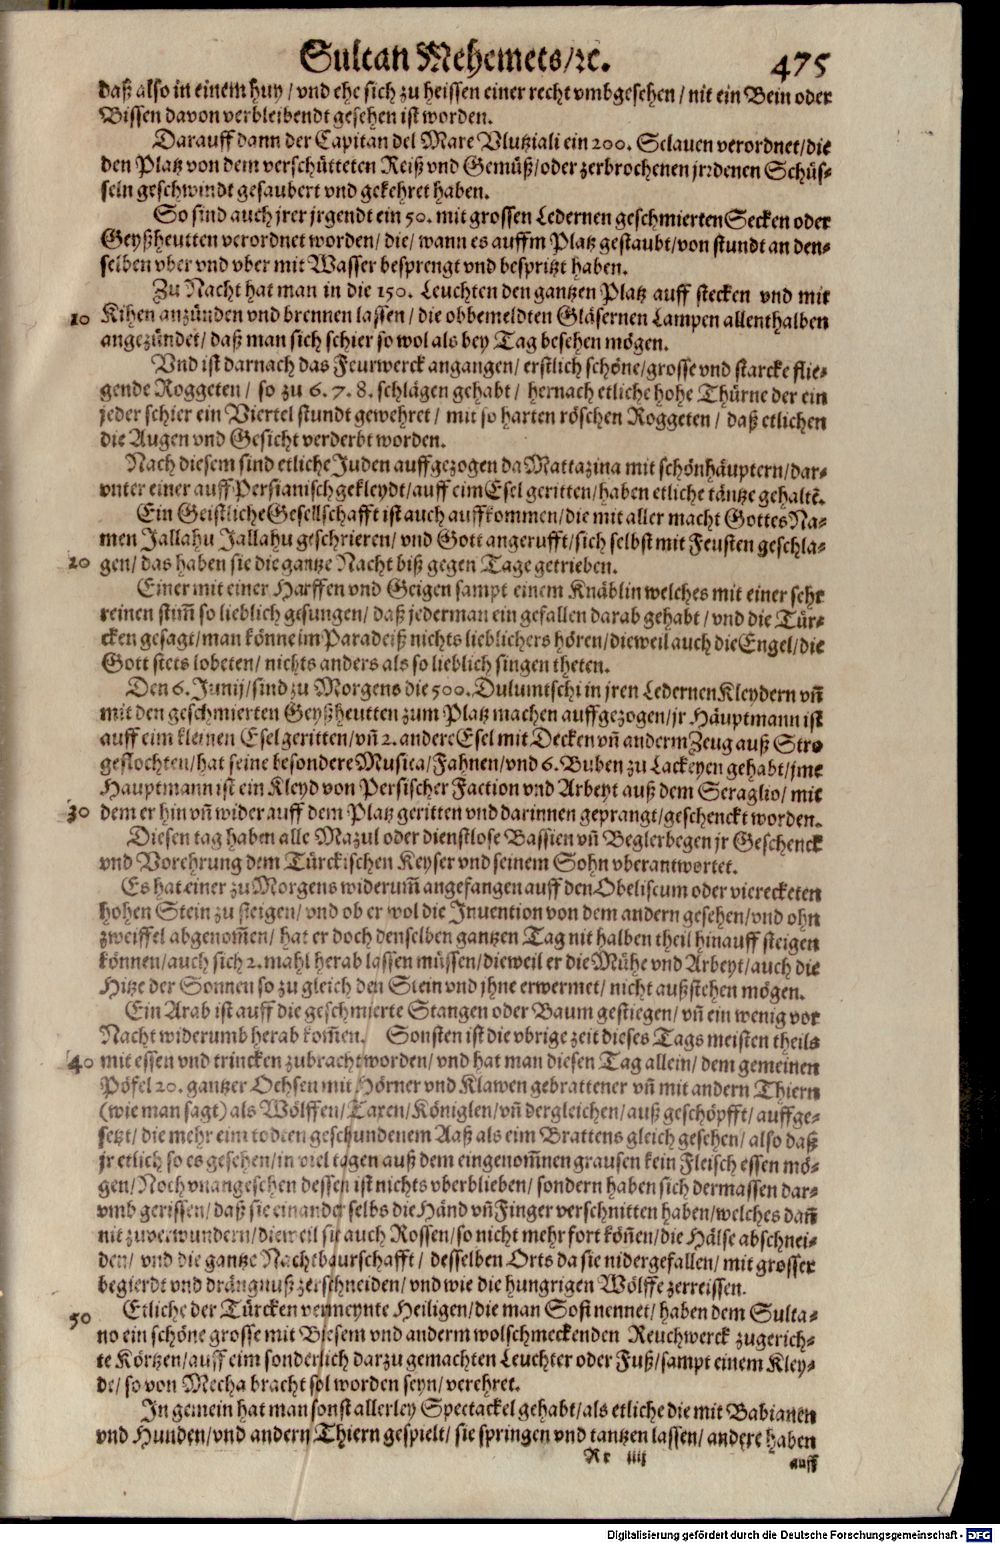 Sultan Mehemets/ꝛc. 475
daß also in einem huy / vnd ehe sich zu heissen einer recht vmbgesehen / nit ein Bein oder
Bissen davon verbleibendt gesehen ist worden.
Darauff dann der Capitan del Mare Vlutziali ein 200. Sclauen verordnet/die
den Platz von dem verschütteten Reiß vnd Gemüß/oder zerbrochenen jrrdenen Schüs-
seln geschwindt gesaubert vnd gekehret haben.
So sind auch jrer jrgendt ein 50. mit grossen Ledernen geschmierten Secken oder
Geyßheutten verordnet worden/ die/ wann es auffm Platz gestaubt/von stundt an den-
selben vber vnd vber mit Wasser besprengt vnd bespritzt haben.
Zu Nacht hat man in die 150. Leuchten den gantzen Platz auff stecken vnd mit
10 Kihen anzünden vnd brennen lassen / die obbemeldten Gläsernen Lampen allenthalben
angezündet/ daß man sich schier so wol als bey Tag besehen mögen.
Vnd ist darnach das Feurwerck angangen/ erstlich schöne/grosse vnd starcke flie-
gende Roggeten / so zu 6. 7. 8. schlägen gehabt / hernach etliche hohe Thürne der ein
jeder schier ein Viertel stundt gewehret / mit so harten röschen Roggeten / daß etlichen
die Augen vnd Gesicht verderbt worden.
Nach diesem sind etliche Juden auffgezogen da Mattazina mit schönhäuptern/dar-
vnter einer auff Persianisch gekleydt/auff eim Esel geritten/haben etliche täntze gehaltē.
Ein Geistliche Gesellschafft ist auch auffkommen/die mit aller macht Gottes Na-
men Jallahu Jallahu geschrieren/ vnd Gott angerufft/sich selbst mit Feusten geschla-
20 gen/ das haben sie die gantze Nacht biß gegen Tage getrieben.
Einer mit einer Harffen vnd Geigen sampt einem Knäblin welches mit einer sehr
reinen stim̄ so lieblich gesungen/ daß jederman ein gefallen darab gehabt / vnd die Tür-
cken gesagt/man könne im Paradeiß nichts lieblichers hören/dieweil auch die Engel/die
Gott stets lobeten/ nichts anders als so lieblich singen theten.
Den 6. Junij/sind zu Morgens die 500. Dulumtschi in jren Ledernen Kleydern vn̄
mit den geschmierten Geyßheutten zum Platz machen auffgezogen/jr Häuptmann ist
auff eim kleinen Esel geritten/vn̄ 2. andere Esel mit Decken vn̄ anderm Zeug auß Stro
geflochten/hat seine besondere Musica/Fahnen/vnd 6. Buben zu Lackeyen gehabt/jme
Hauptmann ist ein Kleyd von Persischer Faction vnd Arbeyt auß dem Seraglio/ mit
30 dem er hin vn̄ wider auff dem Platz geritten vnd darinnen geprangt/geschenckt worden.
Diesen tag haben alle Mazul oder dienstlose Bassien vn̄ Beglerbegen jr Geschenck
vnd Vorehrung dem Türckischen Keyser vnd seinem Sohn vberantwortet.
Es hat einer zu Morgens widerum̄ angefangen auff den Obeliscum oder vierecketen
hohen Stein zu steigen/ vnd ob er wol die Invention von dem andern gesehen/vnd ohn
zweiffel abgenom̄en/ hat er doch denselben gantzen Tag nit halben theil hinauff steigen
können/auch sich 2. mahl herab lassen müssen/dieweil er die Mühe vnd Arbeyt/auch die
Hitze der Sonnen so zu gleich den Stein vnd jhne erwermet/ nicht außstehen mögen.
Ein Arab ist auff die geschmierte Stangen oder Baum gestiegen/ vn̄ ein wenig vor
Nacht widerumb herab kom̄en. Sonsten ist die vbrige zeit dieses Tags meisten theils
40 mit essen vnd trincken zubracht worden/ vnd hat man diesen Tag allein/ dem gemeinen
Pöfel 20. gantzer Ochsen mit Hörner vnd Klawen gebrattener vn̄ mit andern Thiern
(wie man sagt) als Wölffen/Taxen/Königlen/vn̄ dergleichen/ auß geschöpfft/ auffge-
setzt/ die mehr eim todten geschundenem Aaß als eim Brattens gleich gesehen/ also daß
jr etlich so es gesehen/in viel tagen auß dem eingenom̄nen grausen kein Fleisch essen mö-
gen/ Noch vnangesehen dessen ist nichts vberblieben/ sondern haben sich dermassen dar-
vmb gerissen/ daß sie einander selbs die Händ vn̄ Finger verschnitten haben/welches dan̄
nit zuverwundern/dieweil sie auch Rossen/so nicht mehr fort kön̄en/die Hälse abschnei-
den/ vnd die gantze Nachtbaurschafft / desselben Orts da sie nidergefallen/ mit grosser
begierdt vnd drängnuß zerschneiden/ vnd wie die hungrigen Wölffe zerreissen.
50 Etliche der Türcken vermeynte Heiligen/die man Sofi nennet/ haben dem Sulta-
no ein schöne grosse mit Biesem vnd anderm wolschmeckenden Reuchwerck zugerich-
te Körtzen/auff eim sonderlich darzu gemachten Leuchter oder Fuß/sampt einem Kley-
de/ so von Mecha bracht sol worden seyn/ verehret.
In gemein hat man sonst allerley Spectackel gehabt/als etliche die mit Babianen
vnd Hunden/vnd andern Thiern gespielt/ sie springen vnd tantzen lassen/ andere haben
Rr iiij auff
Digitalisierung gefördert durch die Deutsche Forschungsgemeinschaft - DFG